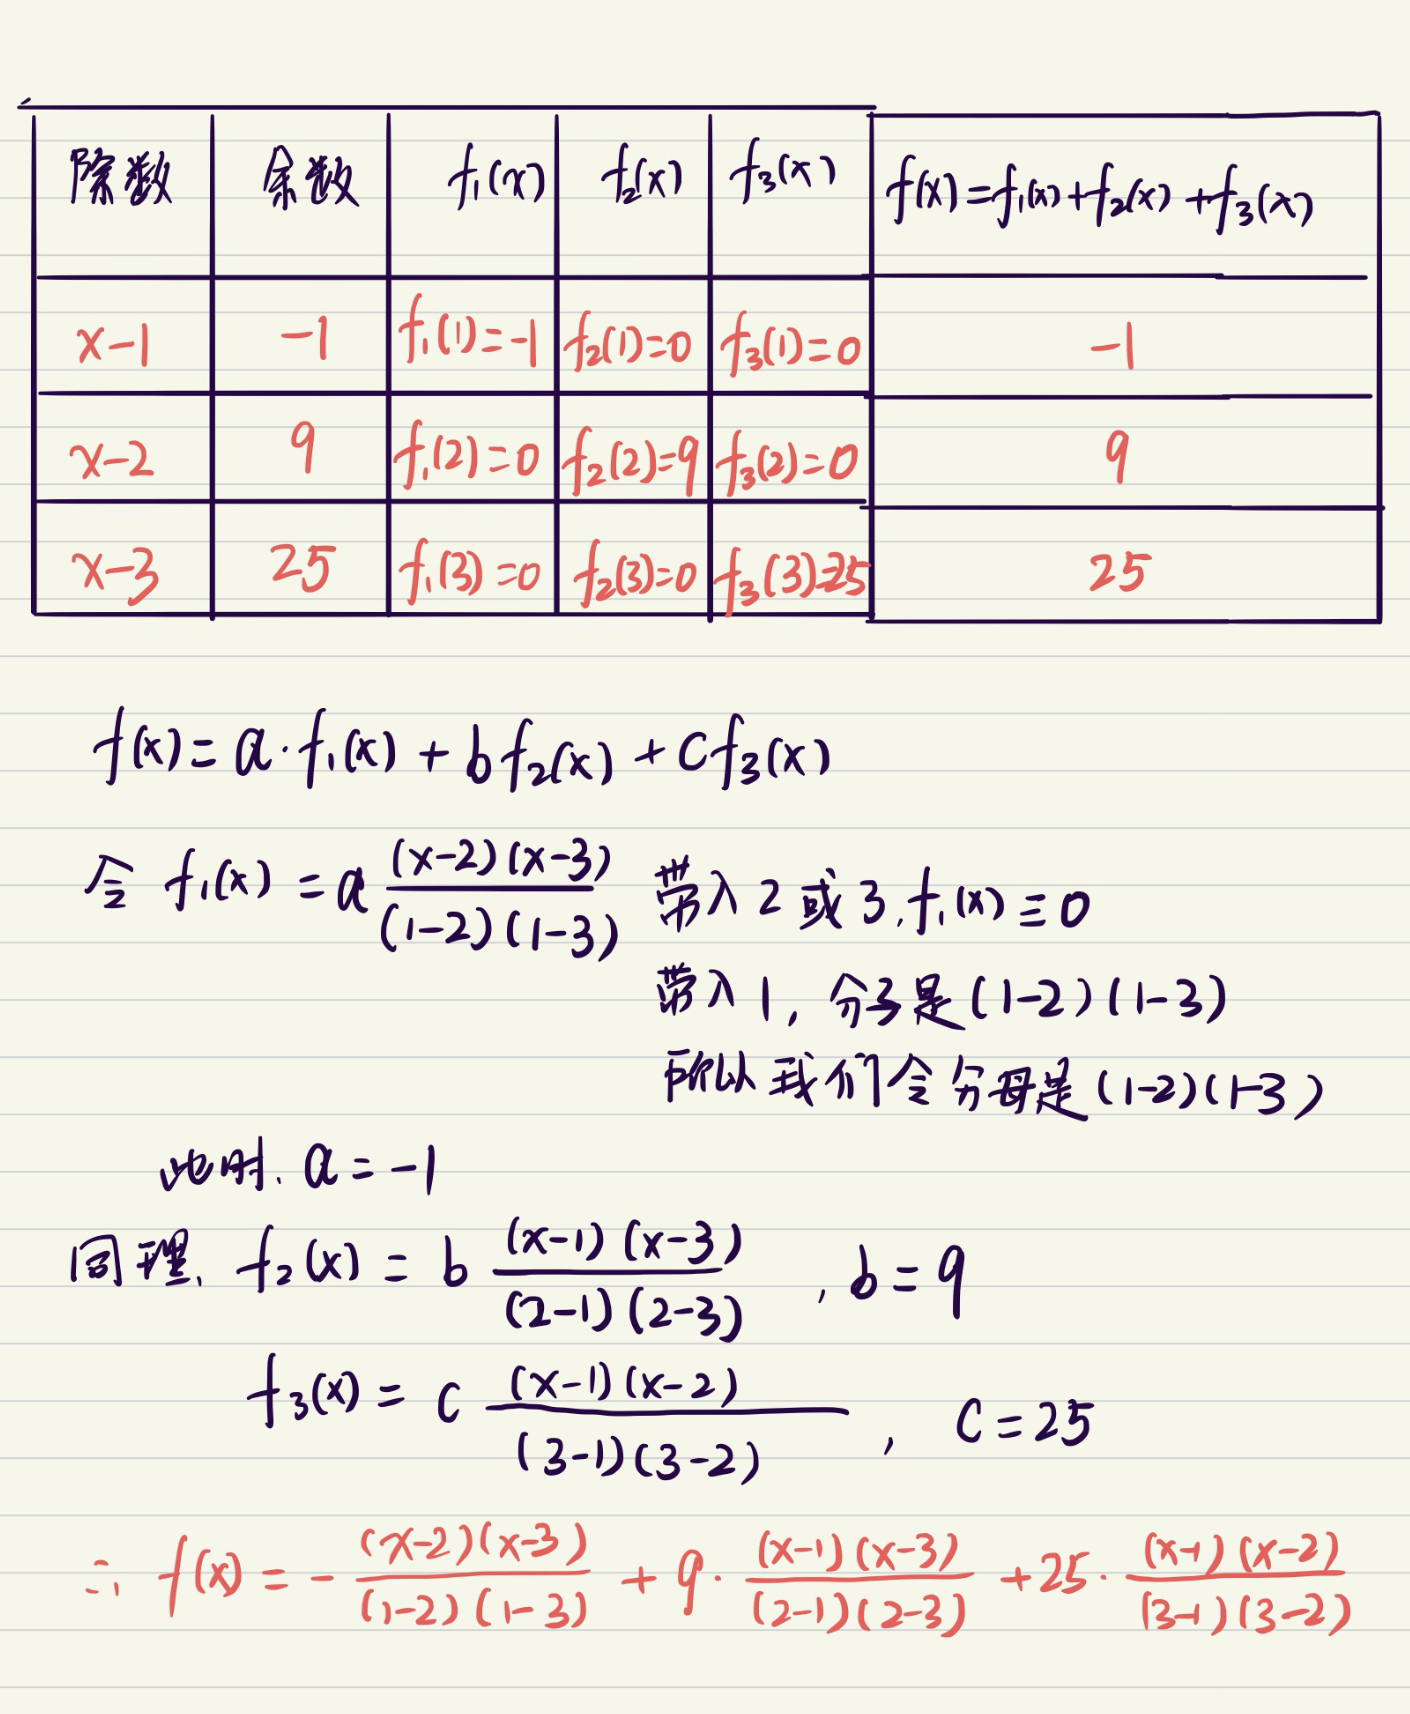 除数 余数 f₁(x) f₂(x) f₃(x) f(x)=f₁(x)+f₂(x)+f₃(x)
x-1 -1 f₁(1)=-1 f₂(1)=0 f₃(1)=0 -1
x-2 9 f₁(2)=0 f₂(2)=9 f₃(2)=0 9
x-3 25 f₁(3)=0 f₂(3)=0 f₃(3)=25 25
f(x)=a·f₁(x)+bf₂(x)+cf₃(x)
令 f₁(x)=a (x-2)(x-3)/(1-2)(1-3) 带入2或3,f₁(x)≡0
带入1,分子是(1-2)(1-3)
所以我们令分母是(1-2)(1-3)
此时,a=-1
同理, f₂(x)=b (x-1)(x-3)/(2-1)(2-3) , b=9
f₃(x)=c (x-1)(x-2)/(3-1)(3-2) , c=25
∴ f(x)=- (x-2)(x-3)/(1-2)(1-3) +9· (x-1)(x-3)/(2-1)(2-3) +25· (x-1)(x-2)/(3-1)(3-2)